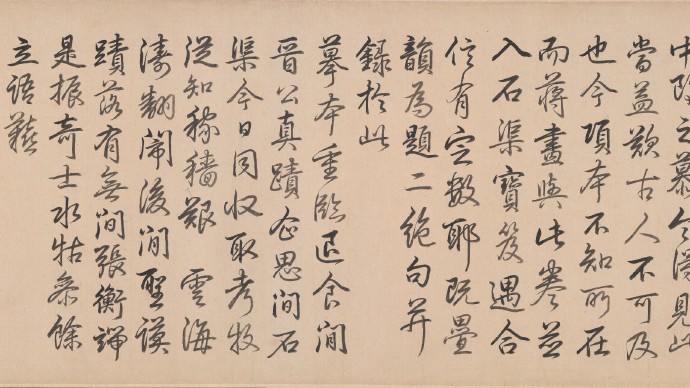 之慕今得見此
當益歎古人不可及
也今項本不知所在
而蔣畫與此卷並
入石渠寶笈遇合
信有定數耶既疊
韻為題二絕句并
錄於此
摹本重臨退食間
晉公真蹟企思間石
渠今日同收取考牧
從知稼穡艱雲海
濤翻鬧後間聖謨
蹟落有無間張衡端
是振奇士水牯參餘
立語